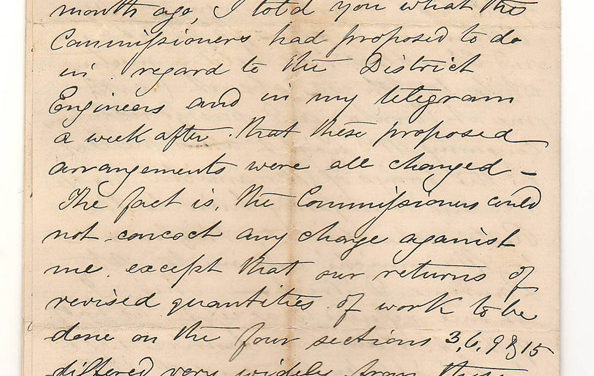 month ago, I told you what the
Commissioners had proposed to do
in regard to the District
Engineers and in my telegram
a week after. that these proposed
arrangements were all changed –
The fact is, the Commissioners could
not concoct any charge against
me. except that our returns of
revised quantities of work to be
done on the four sections 3, 6, 9 & 15
differed very widely from these